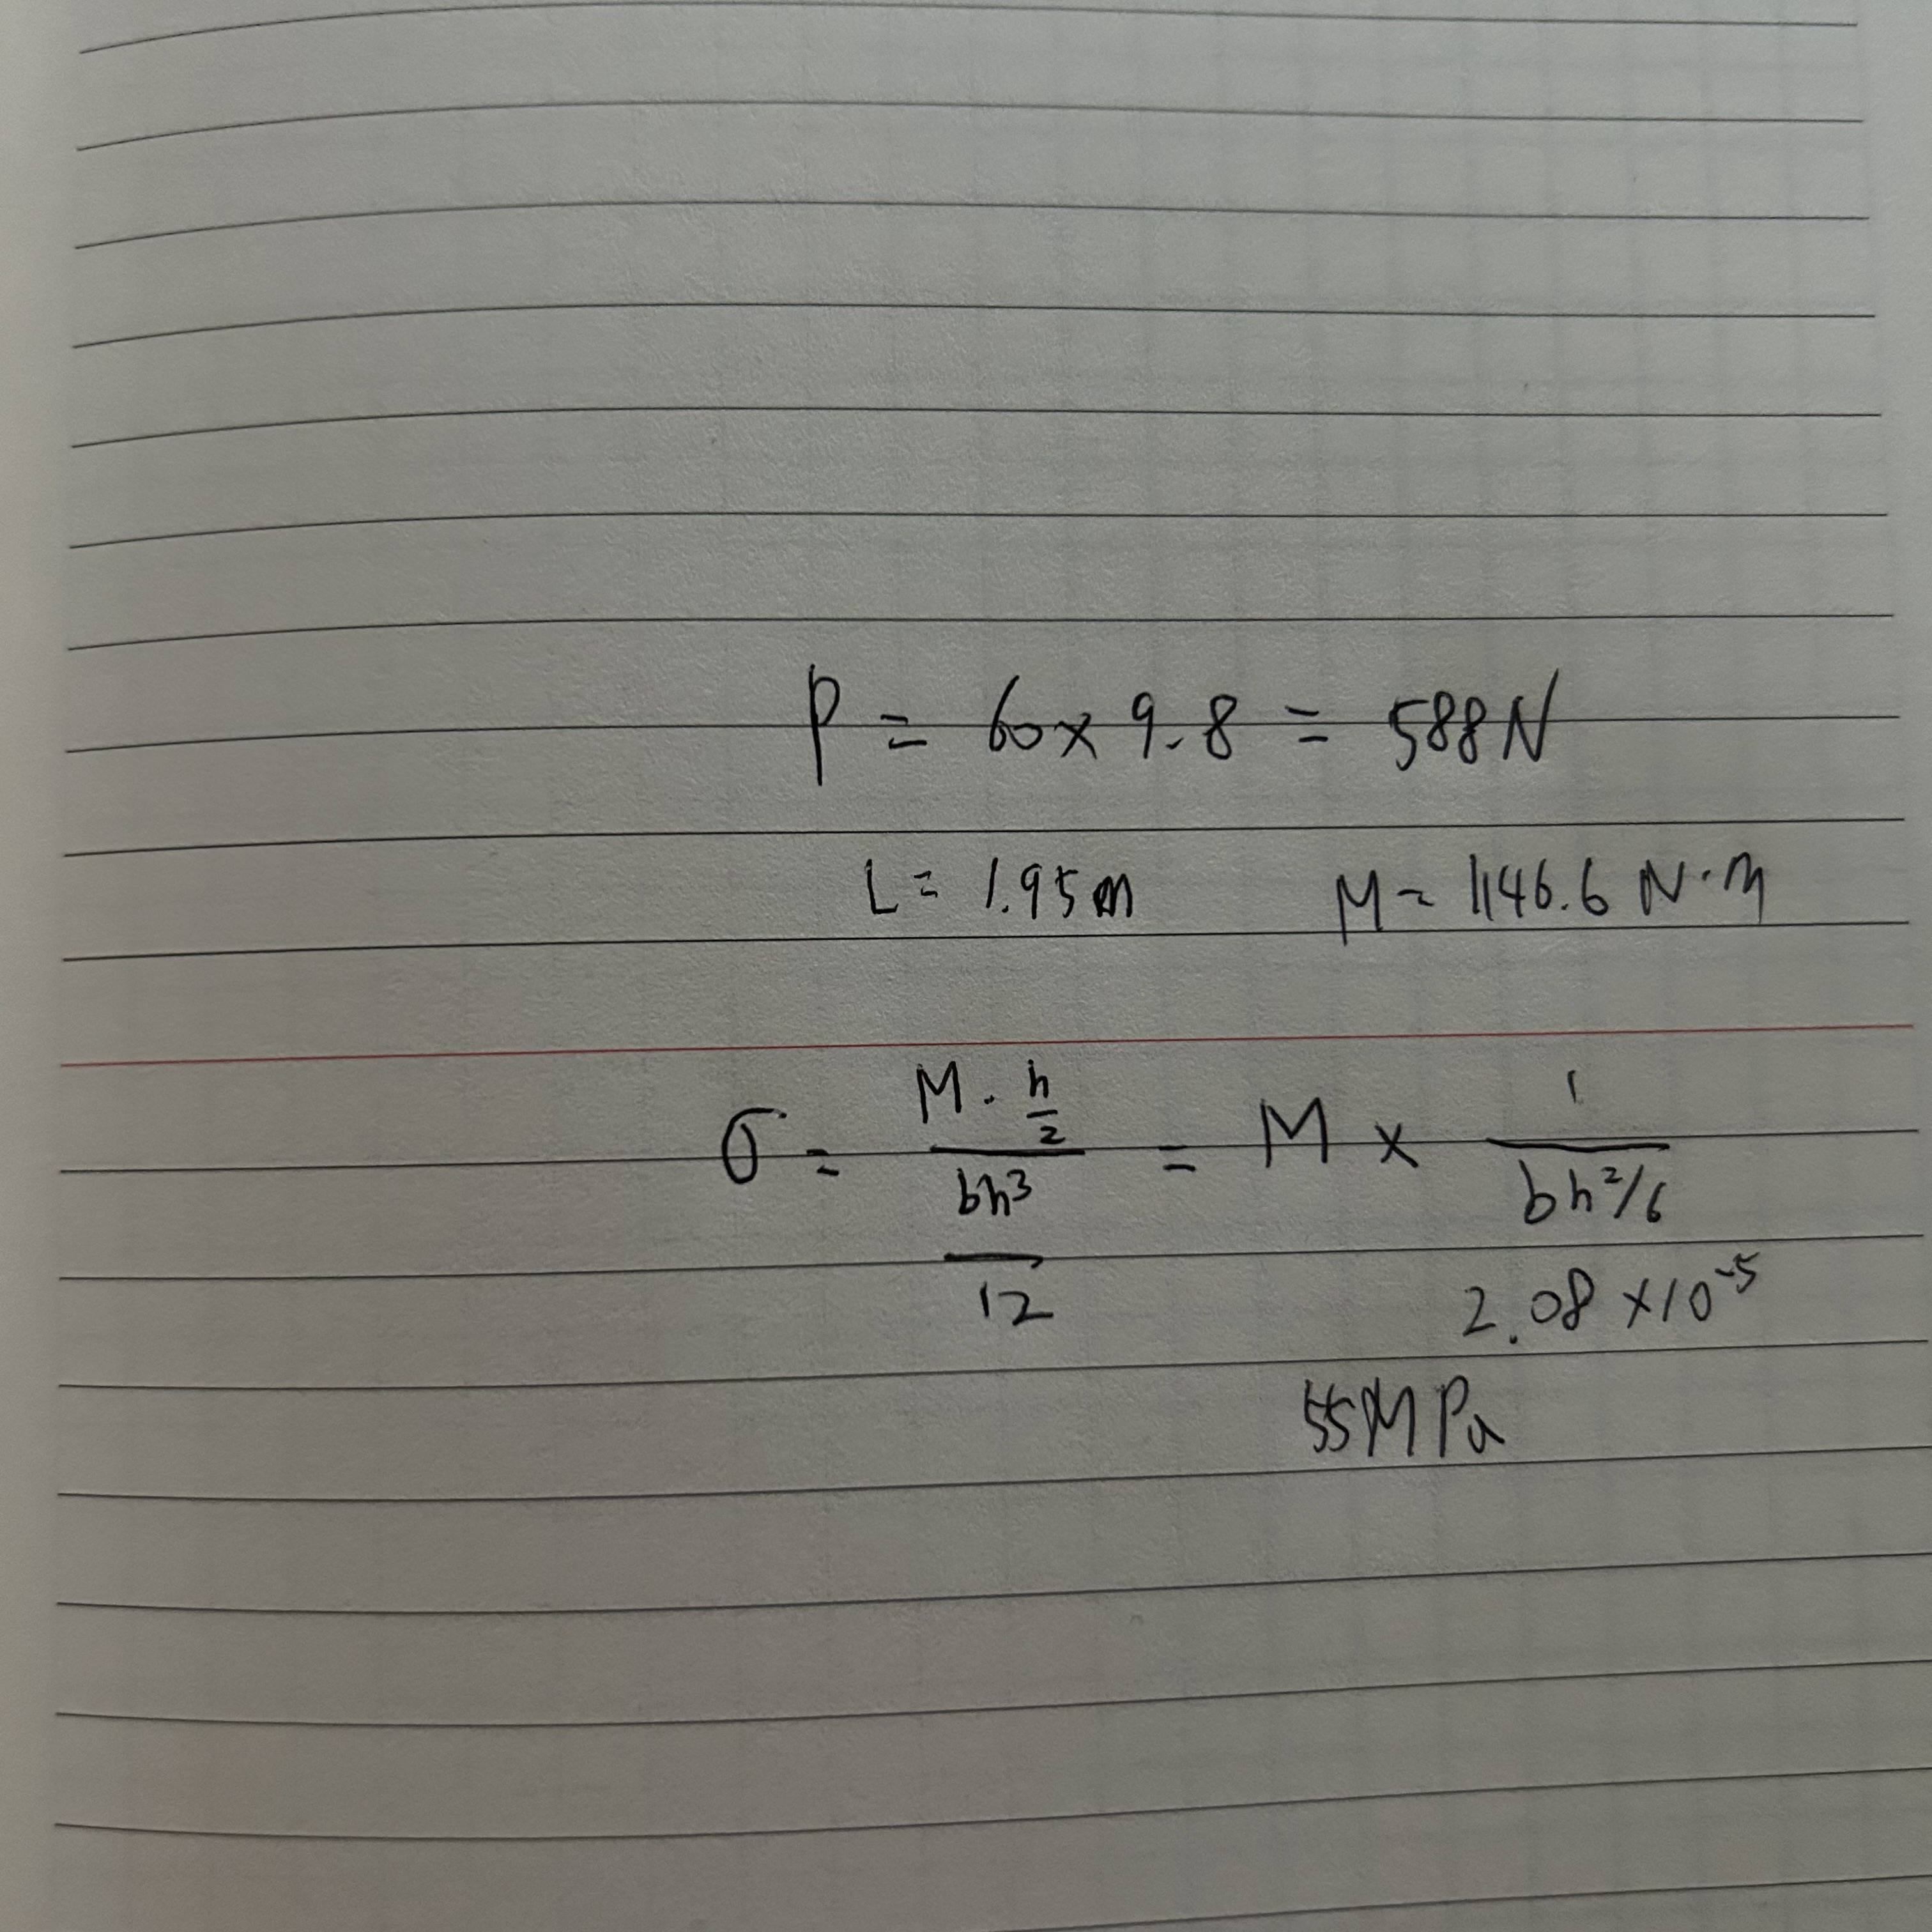 P = 60 × 9.8 = 588N
L = 1.95m M = 1146.6 N·m
σ = (M · h/2) / (bh³/12) = M × 1 / (bh²/6)
2.08 ×10⁻⁵
55MPa